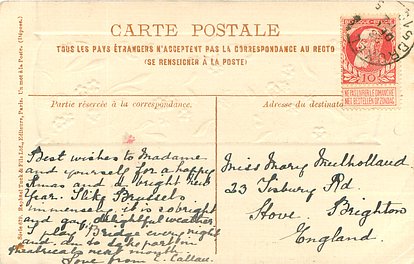 CARTE POSTALE
TOUS LES PAYS ÉTRANGERS N'ACCEPTENT PAS LA CORRESPONDANCE AU RECTO
(SE RENSEIGNER À LA POSTE)
10
NE PAS LIVRER LE DIMANCHE
NIET BESTELLEN OP ZONDAG
Partie réservée à la correspondance.
Adresse du destinata
Raphael Tuck & Fils Ltd, Éditeurs, Paris. Un mot à la Poste. (Déposé).
Best wishes to Madame
and yourself for a happy
Xmas and a bright New
Year. I like Brussels
immensely, it is so bright
and gay, delightful weather
I play Bridge every night
and am to take part in
theatricals next month
Love from
Miss Mary Mulholland
23 Tisbury Rd.
Hove. Brighton
England.